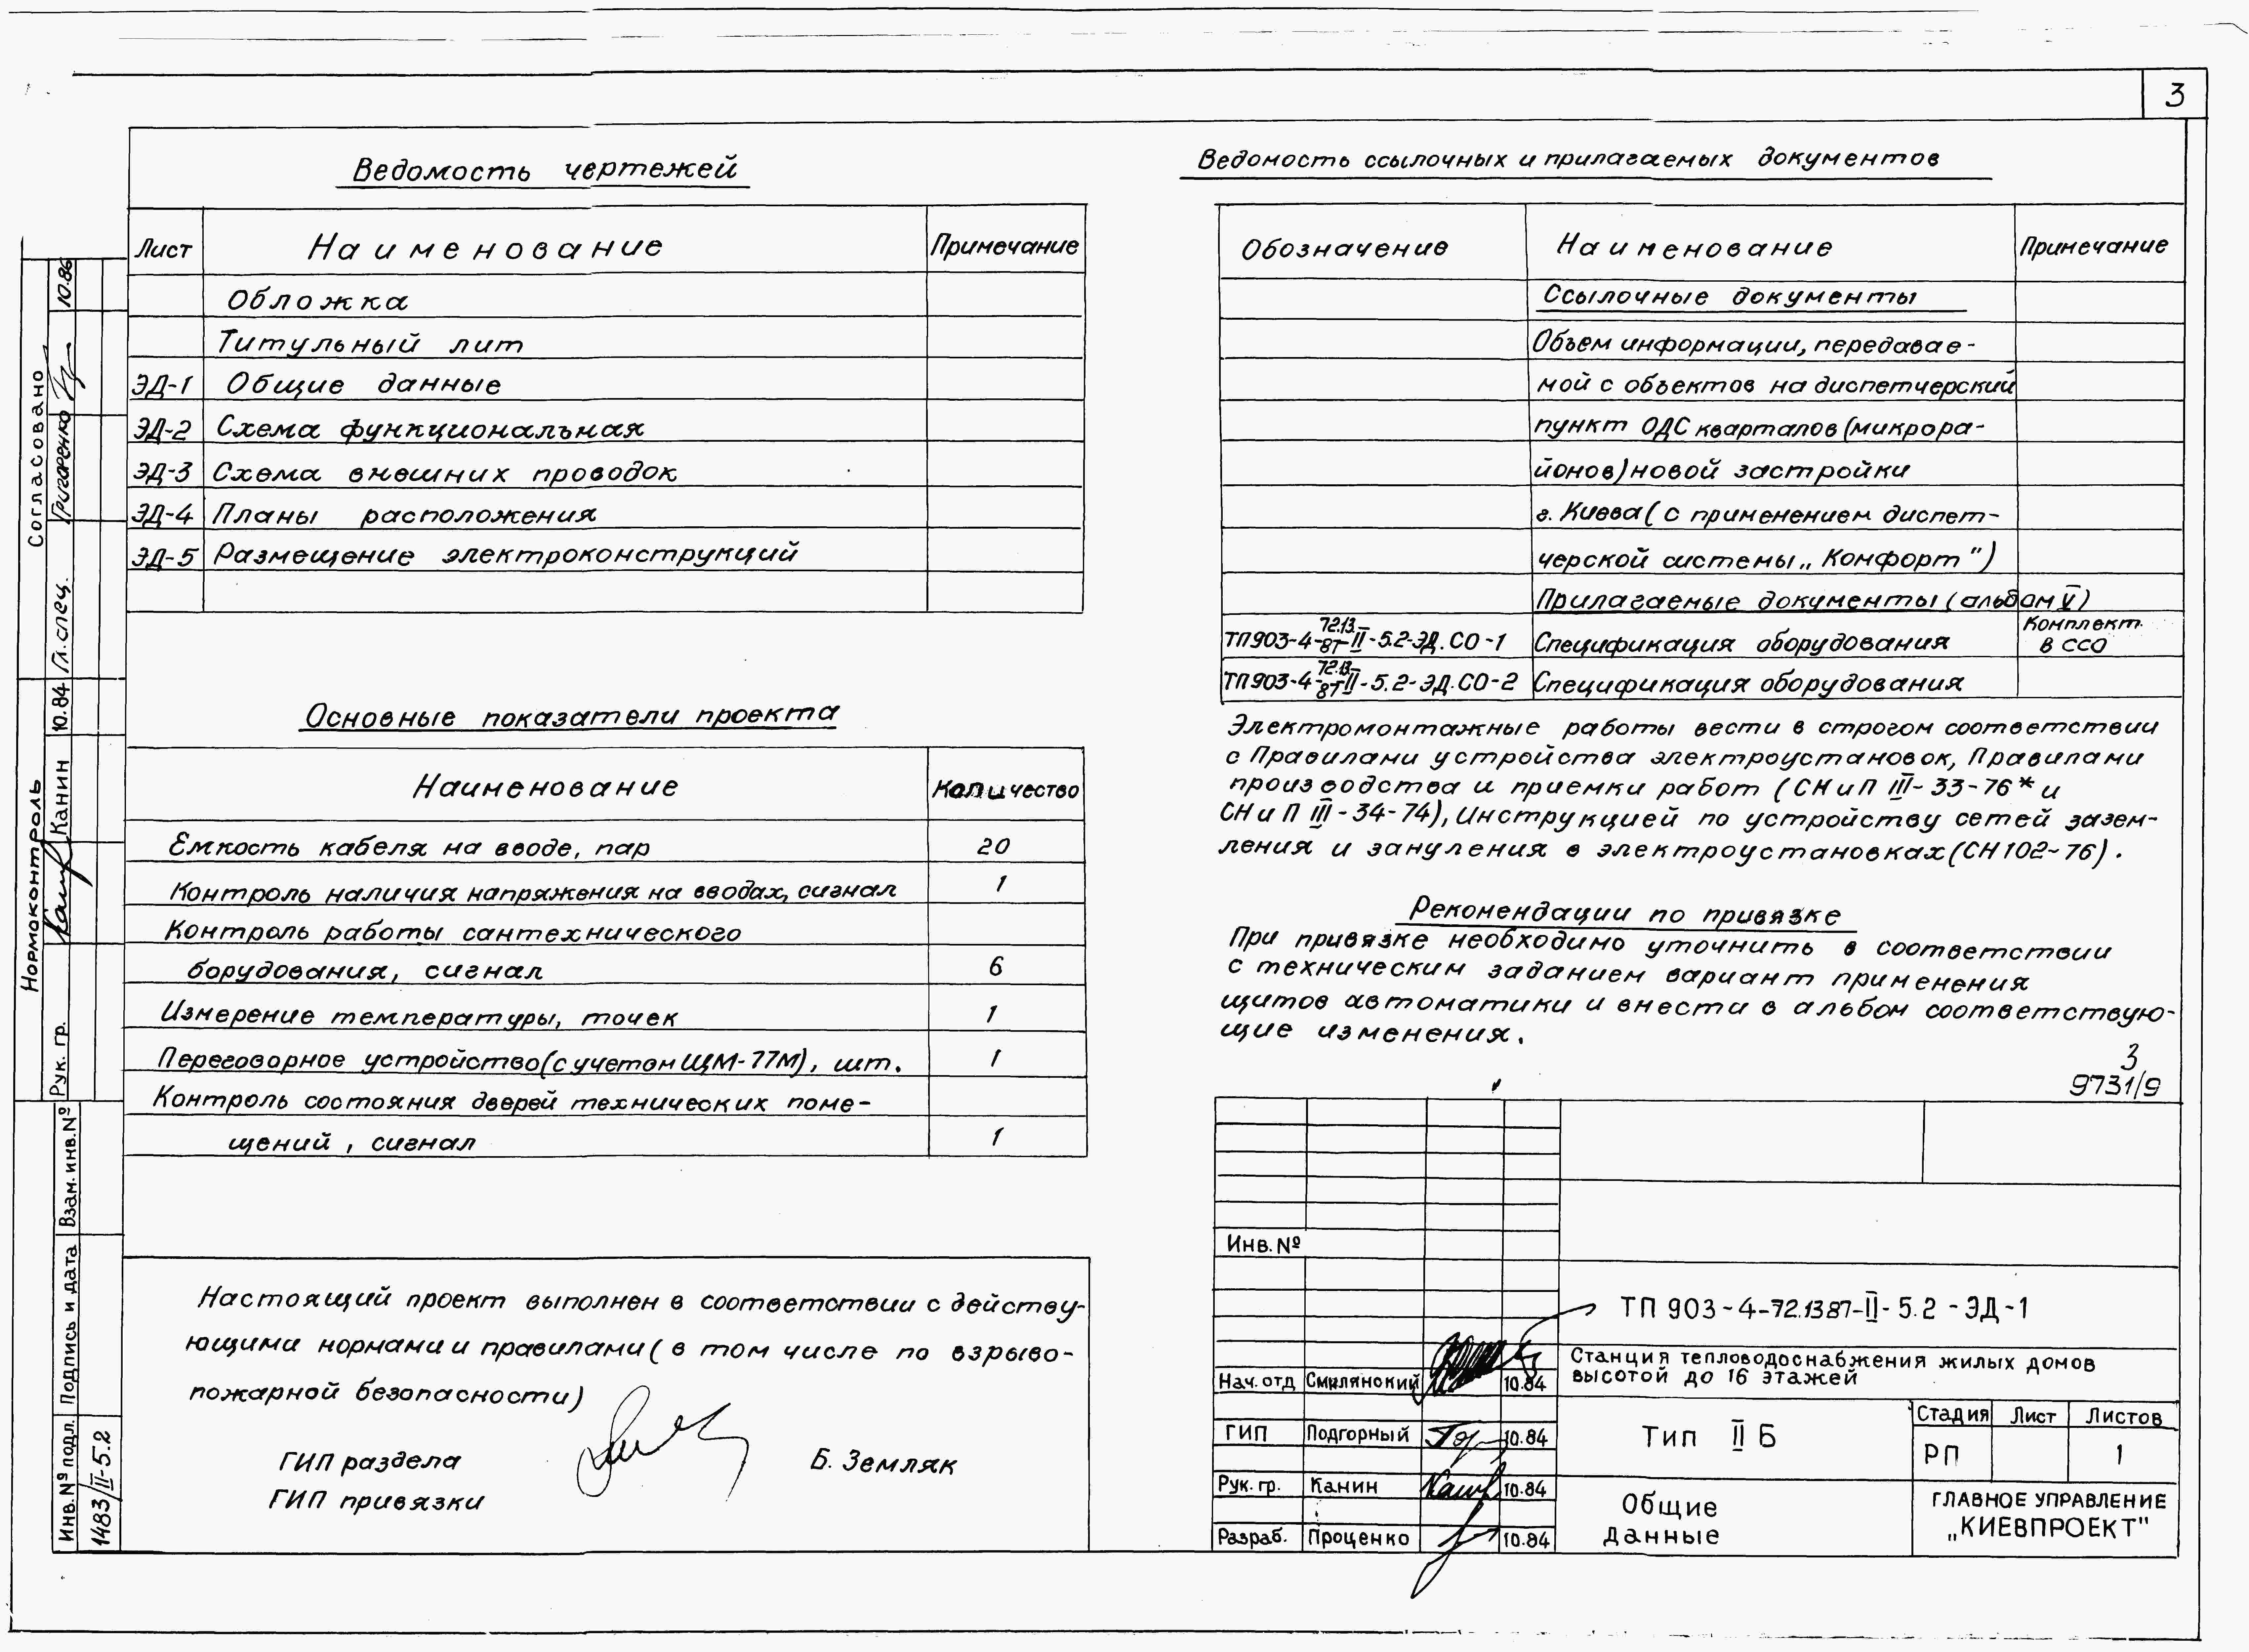 3
Ведомость чертежей
Лист Наименование Примечание
Обложка
Титульный лит
ЭД-1 Общие данные
ЭД-2 Схема функциональная
ЭД-3 Схема внешних проводок
ЭД-4 Планы расположения
ЭД-5 Размещение электроконструкций
Основные показатели проекта
Наименование Количество
Емкость кабеля на вводе, пар 20
Контроль наличия напряжения на вводах, сигнал 1
Контроль работы сантехнического
борудования, сигнал 6
Измерение температуры, точек 1
Переговорное устройство (с учетом ЩМ-77М), шт. 1
Контроль состояния дверей технических поме-
щений, сигнал 1
Настоящий проект выполнен в соответствии с действу-
ющими нормами и правилами (в том числе по взрыво-
пожарной безопасности)
ГИП раздела Б. Земляк
ГИП привязки
Ведомость ссылочных и прилагаемых документов
Обозначение Наименование Примечание
Ссылочные документы
Объем информации, передавае-
мой с объектов на диспетчерский
пункт ОДС кварталов (микрора-
йонов) новой застройки
г. Киева (с применением диспет-
черской системы „Комфорт")
Прилагаемые документы (альбом V)
ТП903-4-72.13.87-II-5.2-ЭД.СО-1 Спецификация оборудования Комплект. в ССО
ТП903-4-72.13.87-II-5.2-ЭД.СО-2 Спецификация оборудования
Электромонтажные работы вести в строгом соответствии
с Правилами устройства электроустановок, Правилами
производства и приемки работ (СНиП III-33-76* и
СНиП III-34-74), Инструкцией по устройству сетей зазем-
ления и зануления в электроустановках (СН102-76).
Рекомендации по привязке
При привязке необходимо уточнить в соответствии
с техническим заданием вариант применения
щитов автоматики и внести в альбом соответствую-
щие изменения.
3
9731/9
Инв. №
ТП 903-4-72.1387-II-5.2-ЭД-1
Станция тепловодоснабжения жилых домов
высотой до 16 этажей
Нач. отд Смилянский 10.84
ГИП Подгорный 10.84
Рук. гр. Канин 10.84
Разраб. Проценко 10.84
Тип II Б
Стадия Лист Листов
РП 1
Общие
данные
ГЛАВНОЕ УПРАВЛЕНИЕ
„КИЕВПРОЕКТ"
Согласовано
Гл. спец. Григаренко 10.86
Нормоконтроль
Рук. гр. Канин 10.84
Взам. инв. №
Подпись и дата
Инв. № подл.
1483/II-5.2